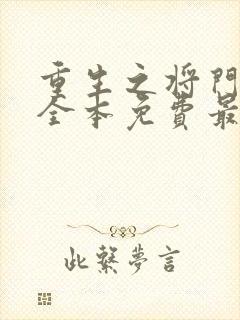 重生之将门
全本免费最
此繫夢言